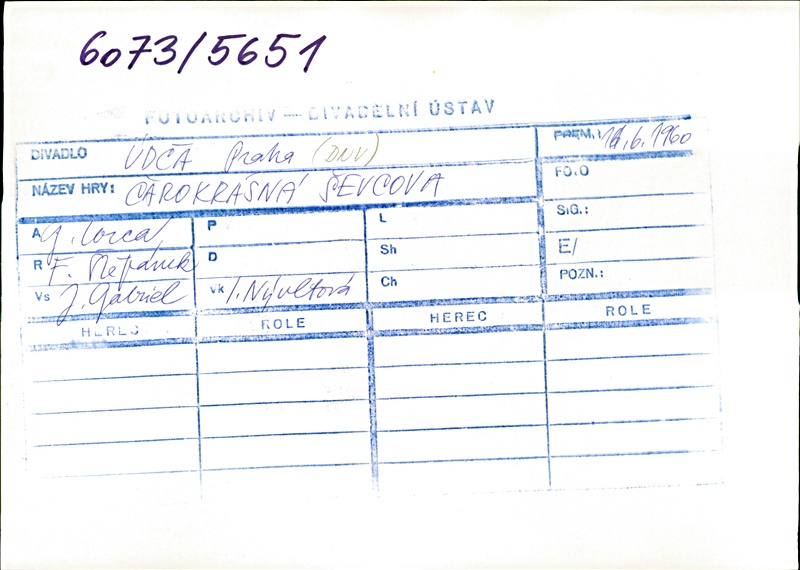 6073/5651
FOTOARCHIV — DIVADELNÍ ÚSTAV
DIVADLO ÚDČA Praha (DNV) PREM.: 14.6.1960
NÁZEV HRY: ČAROKRÁSNÁ ŠEVCOVÁ FOTO
A G. Lorca P L SIG.:
R F. Štěpánek D Sh E/
Vs J. Gabriel Vk I. Nývltová Ch POZN.:
HEREC ROLE HEREC ROLE